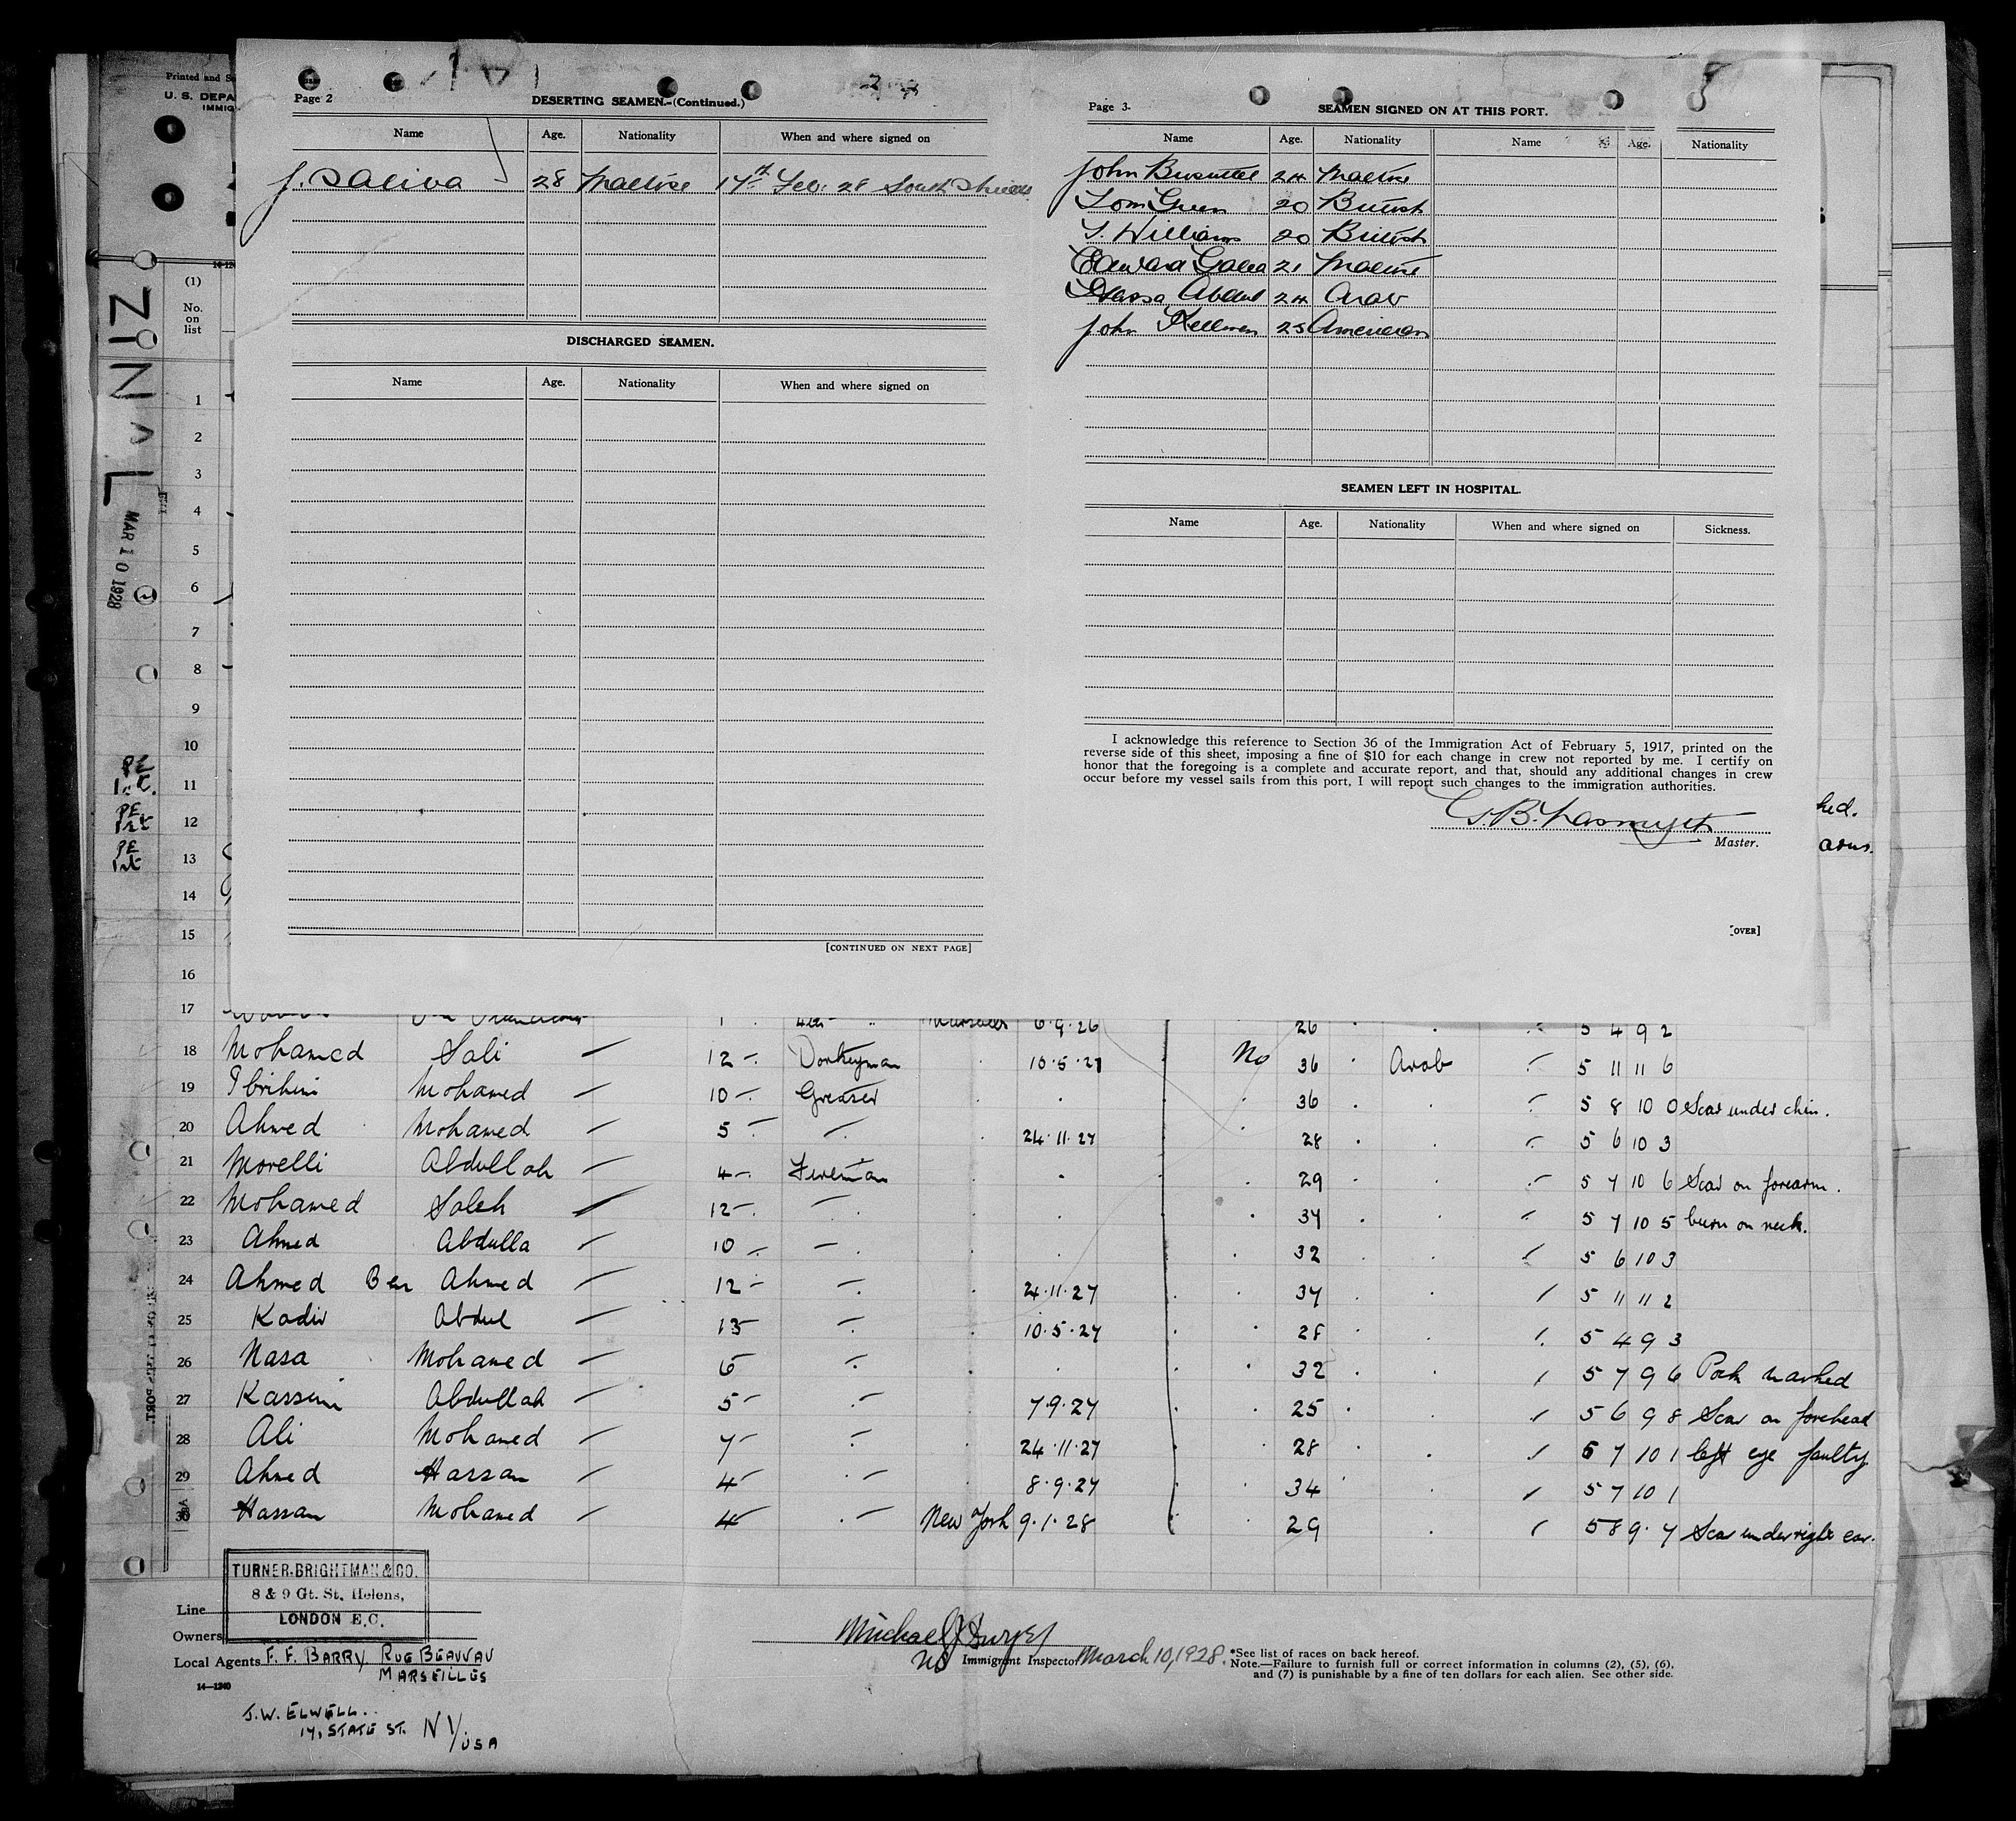 Printed and
U. S. DEPA
IMMIG
Page 2
DESERTING SEAMEN.—(Continued.)
Name Age. Nationality When and where signed on
J. Saliva 28 Maltese 17th Feb: 28 South Shields
DISCHARGED SEAMEN.
Name Age. Nationality When and where signed on
[CONTINUED ON NEXT PAGE]
Page 3.
SEAMEN SIGNED ON AT THIS PORT.
Name Age. Nationality Name Age. Nationality
John Busuttel 24 Maltese
Tom Green 20 British
S. Williams 20 British
Edward Galea 21 Maltese
Hassa Abdul 24 Arab
John Kellman 25 American
SEAMEN LEFT IN HOSPITAL.
Name Age. Nationality When and where signed on Sickness.
I acknowledge this reference to Section 36 of the Immigration Act of February 5, 1917, printed on the
reverse side of this sheet, imposing a fine of $10 for each change in crew not reported by me. I certify on
honor that the foregoing is a complete and accurate report, and that, should any additional changes in crew
occur before my vessel sails from this port, I will report such changes to the immigration authorities.
Master.
[OVER]
ZINAL
MAR 10 1928
(1)
No.
on
list
1
2
3
4
5
6
7
8
9
10
11
12
13
14
15
16
17 6.9.26 26 5 4 92
18 Mohamed Sali — 12 —. Donkeyman 10.5.27 No 36 Arab 5 11 116
19 Ibrihim Mohamed — 10 —. Greaser 36 5 8 100 Scar under chin.
20 Ahmed Mohamed — 5 — 24.11.27 28 5 6 103
21 Morelli Abdullah — 4 — Fireman 29 5 7 106 Scar on forearm.
22 Mohamed Saleh — 12 —. 37 5 7 105 burn on neck.
23 Ahmed Abdulla — 10 — 32 5 6 103
24 Ahmed Ben Ahmed — 12 — 24.11.27 37 5 11 112
25 Kadir Abdul — 13 — 10.5.27 28 5 4 93
26 Nasa Mohamed — 6 — 32 5 7 96 Pock marked
27 Kassim Abdullah — 5 — 7.9.27 25 5 6 98 Scar on forehead
28 Ali Mohamed — 7 — 24.11.27 28 5 7 101 left eye faulty
29 Ahmed Hassan — 4 — 8.9.27 34 5 7 101
30 Hassan Mohamed — 4 — New York 9.1.28 29 5 8 9.7 Scar under right ear.
TURNER. BRIGHTMAN & CO.
8 & 9 Gt. St. Helens,
LONDON E.C.
Line
Owners
Local Agents F. F. BARRY RUE BEAUVAU
MARSEILLES
14—1240
J.W. ELWELL.
17, STATE ST. NY/USA
Immigrant Inspector March 10, 1928.
*See list of races on back hereof.
Note.—Failure to furnish full or correct information in columns (2), (5), (6),
and (7) is punishable by a fine of ten dollars for each alien. See other side.